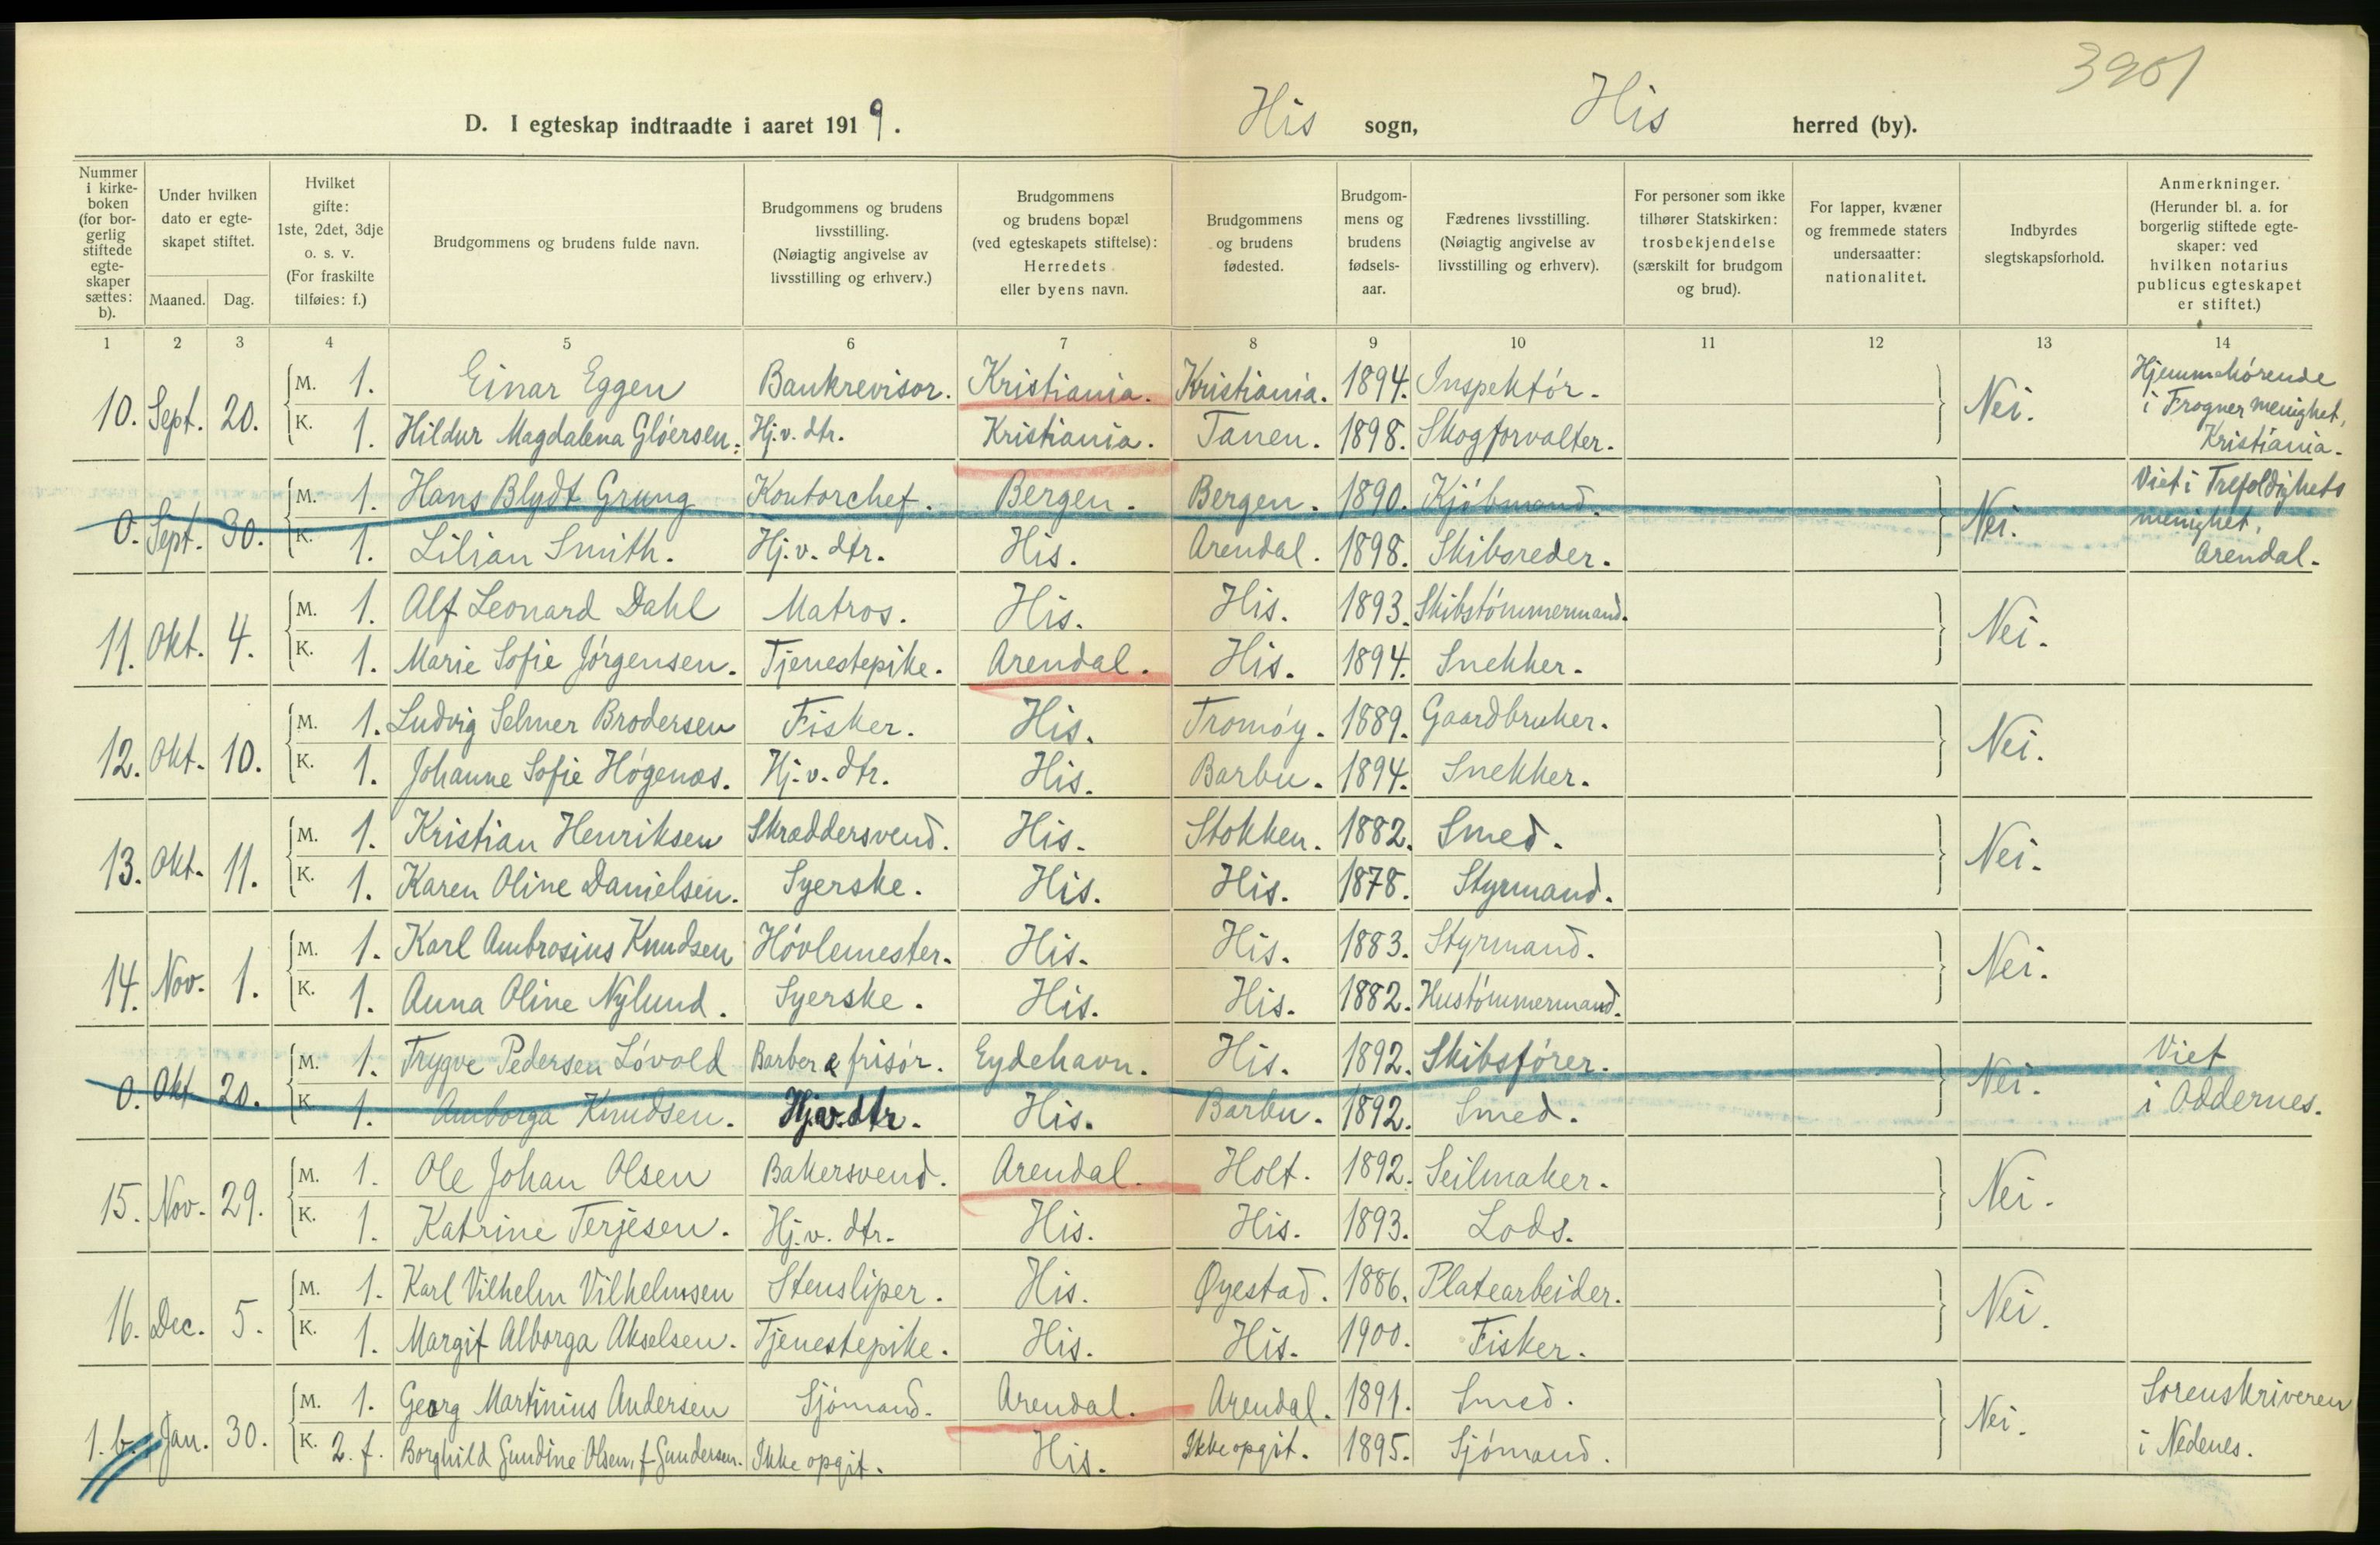 3901
D. I egteskap indtraadte i aaret 1919. His sogn, His herred (by).
Nummer i kirke-boken (for bor-gerlig stiftede egte-skaper sættes: b).
Under hvilken dato er egte-skapet stiftet.
Maaned. Dag.
Hvilket gifte: 1ste, 2det, 3dje o. s. v. (For fraskilte tilføies: f.)
Brudgommens og brudens fulde navn.
Brudgommens og brudens livsstilling. (Nøiagtig angivelse av livsstilling og erhverv.)
Brudgommens og brudens bopæl (ved egteskapets stiftelse): Herredets eller byens navn.
Brudgommens og brudens fødested.
Brudgom-mens og brudens fødsels-aar.
Fædrenes livsstilling. (Nøiagtig angivelse av livsstilling og erhverv).
For personer som ikke tilhører Statskirken: trosbekjendelse (særskilt for brudgom og brud).
For lapper, kvæner og fremmede staters undersaatter: nationalitet.
Indbyrdes slegtskapsforhold.
Anmerkninger. (Herunder bl. a. for borgerlig stiftede egte-skaper: ved hvilken notarius publicus egteskapet er stiftet.)
1 2 3 4 5 6 7 8 9 10 11 12 13 14
10. Sept. 20. M. 1. Einar Eggen Bankrevisor. Kristiania. Kristiania. 1894. Inspektór. Nei. Hjemmehórende i Frogner menighet, Kristiania.
K. 1. Hildur Magdalena Glóersen. Hj. v. dtr. Kristiania. Tanen. 1898. Skogforvalter.
0. Sept. 30. M. 1. Hans Blydt Grung Kontorchef. Bergen. Bergen. 1890. Kjóbmand. Nei. Viet i Trefoldighets menighet, Arendal.
K. 1. Lilian Smith. Hj. v. dtr. His. Arendal. 1898. Skibsreder.
11. Okt. 4. M. 1. Alf Leonard Dahl Matros. His. His. 1893. Skibstómmermand. Nei.
K. 1. Marie Sofie Jórgensen. Tjenestepike. Arendal. His. 1894. Snekker.
12. Okt. 10. M. 1. Ludvig Selmer Brodersen Fisker. His. Tromóy. 1889. Gaardbruker. Nei.
K. 1. Johanne Sofie Hógenæs. Hj. v. dtr. His. Barbu. 1894. Snekker.
13. Okt. 11. M. 1. Kristian Henriksen Skræddersvend. His. Stokken. 1882. Smed. Nei.
K. 1. Karen Oline Danielsen. Syerske. His. His. 1878. Styrmand.
14. Nov. 1. M. 1. Karl Ambrosius Knudsen Hóvlemester. His. His. 1883. Styrmand. Nei.
K. 1. Anna Oline Nylund. Syerske. His. His. 1882. Hustómmermand.
0. Okt 20. M. 1. Trygve Pedersen Lóvold Barber & frisór. Eydehavn. His. 1892. Skibsfórer. Nei. Viet i Oddernes.
K. 1. Amborga Knudsen. Hj.v.dtr. His. Barbu. 1892. Smed.
15. Nov. 29. M. 1. Ole Johan Olsen Bakersvend. Arendal. Holt. 1892. Seilmaker. Nei.
K. 1. Katrine Terjesen. Hj. v. dtr. His. His. 1893. Lods.
16. Dec. 5. M. 1. Karl Vilhelm Vilhelmsen Stensliper. His. Øyestad. 1886. Platearbeider. Nei.
K. 1. Margit Alborga Akselsen. Tjenestepike. His. His. 1900. Fisker.
1. b. Jan. 30. M. 1. Georg Martinius Andersen Sjómand. Arendal. Arendal. 1891. Smed. Nei. Sorenskriveren i Nedenes.
K. 2. f. Borghild Gundine Olsen, f. Gundersen. Ikke opgit. His. Ikke opgit. 1895. Sjómand.